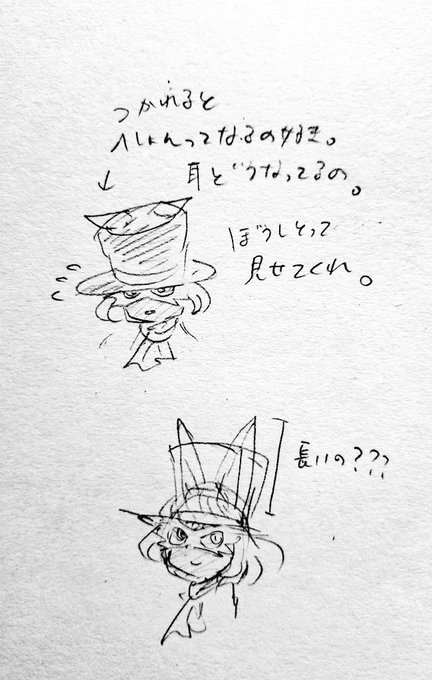 つかれると
へしょんってなるのなま。
耳どうなってるの。
ぼうしとって
見せてくれ。
長いの???